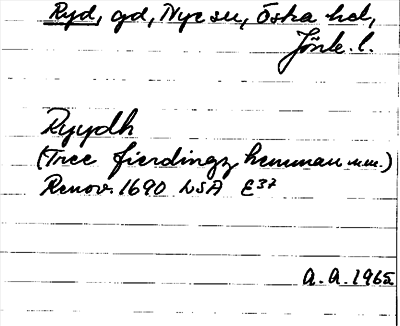 Ryd, gd, Nye sn, Östra hd,
Jönk. l.
Ryydh
(Tree fierdingz hemman mm.)
Renov. 1690 LSA E37
A.A. 1965